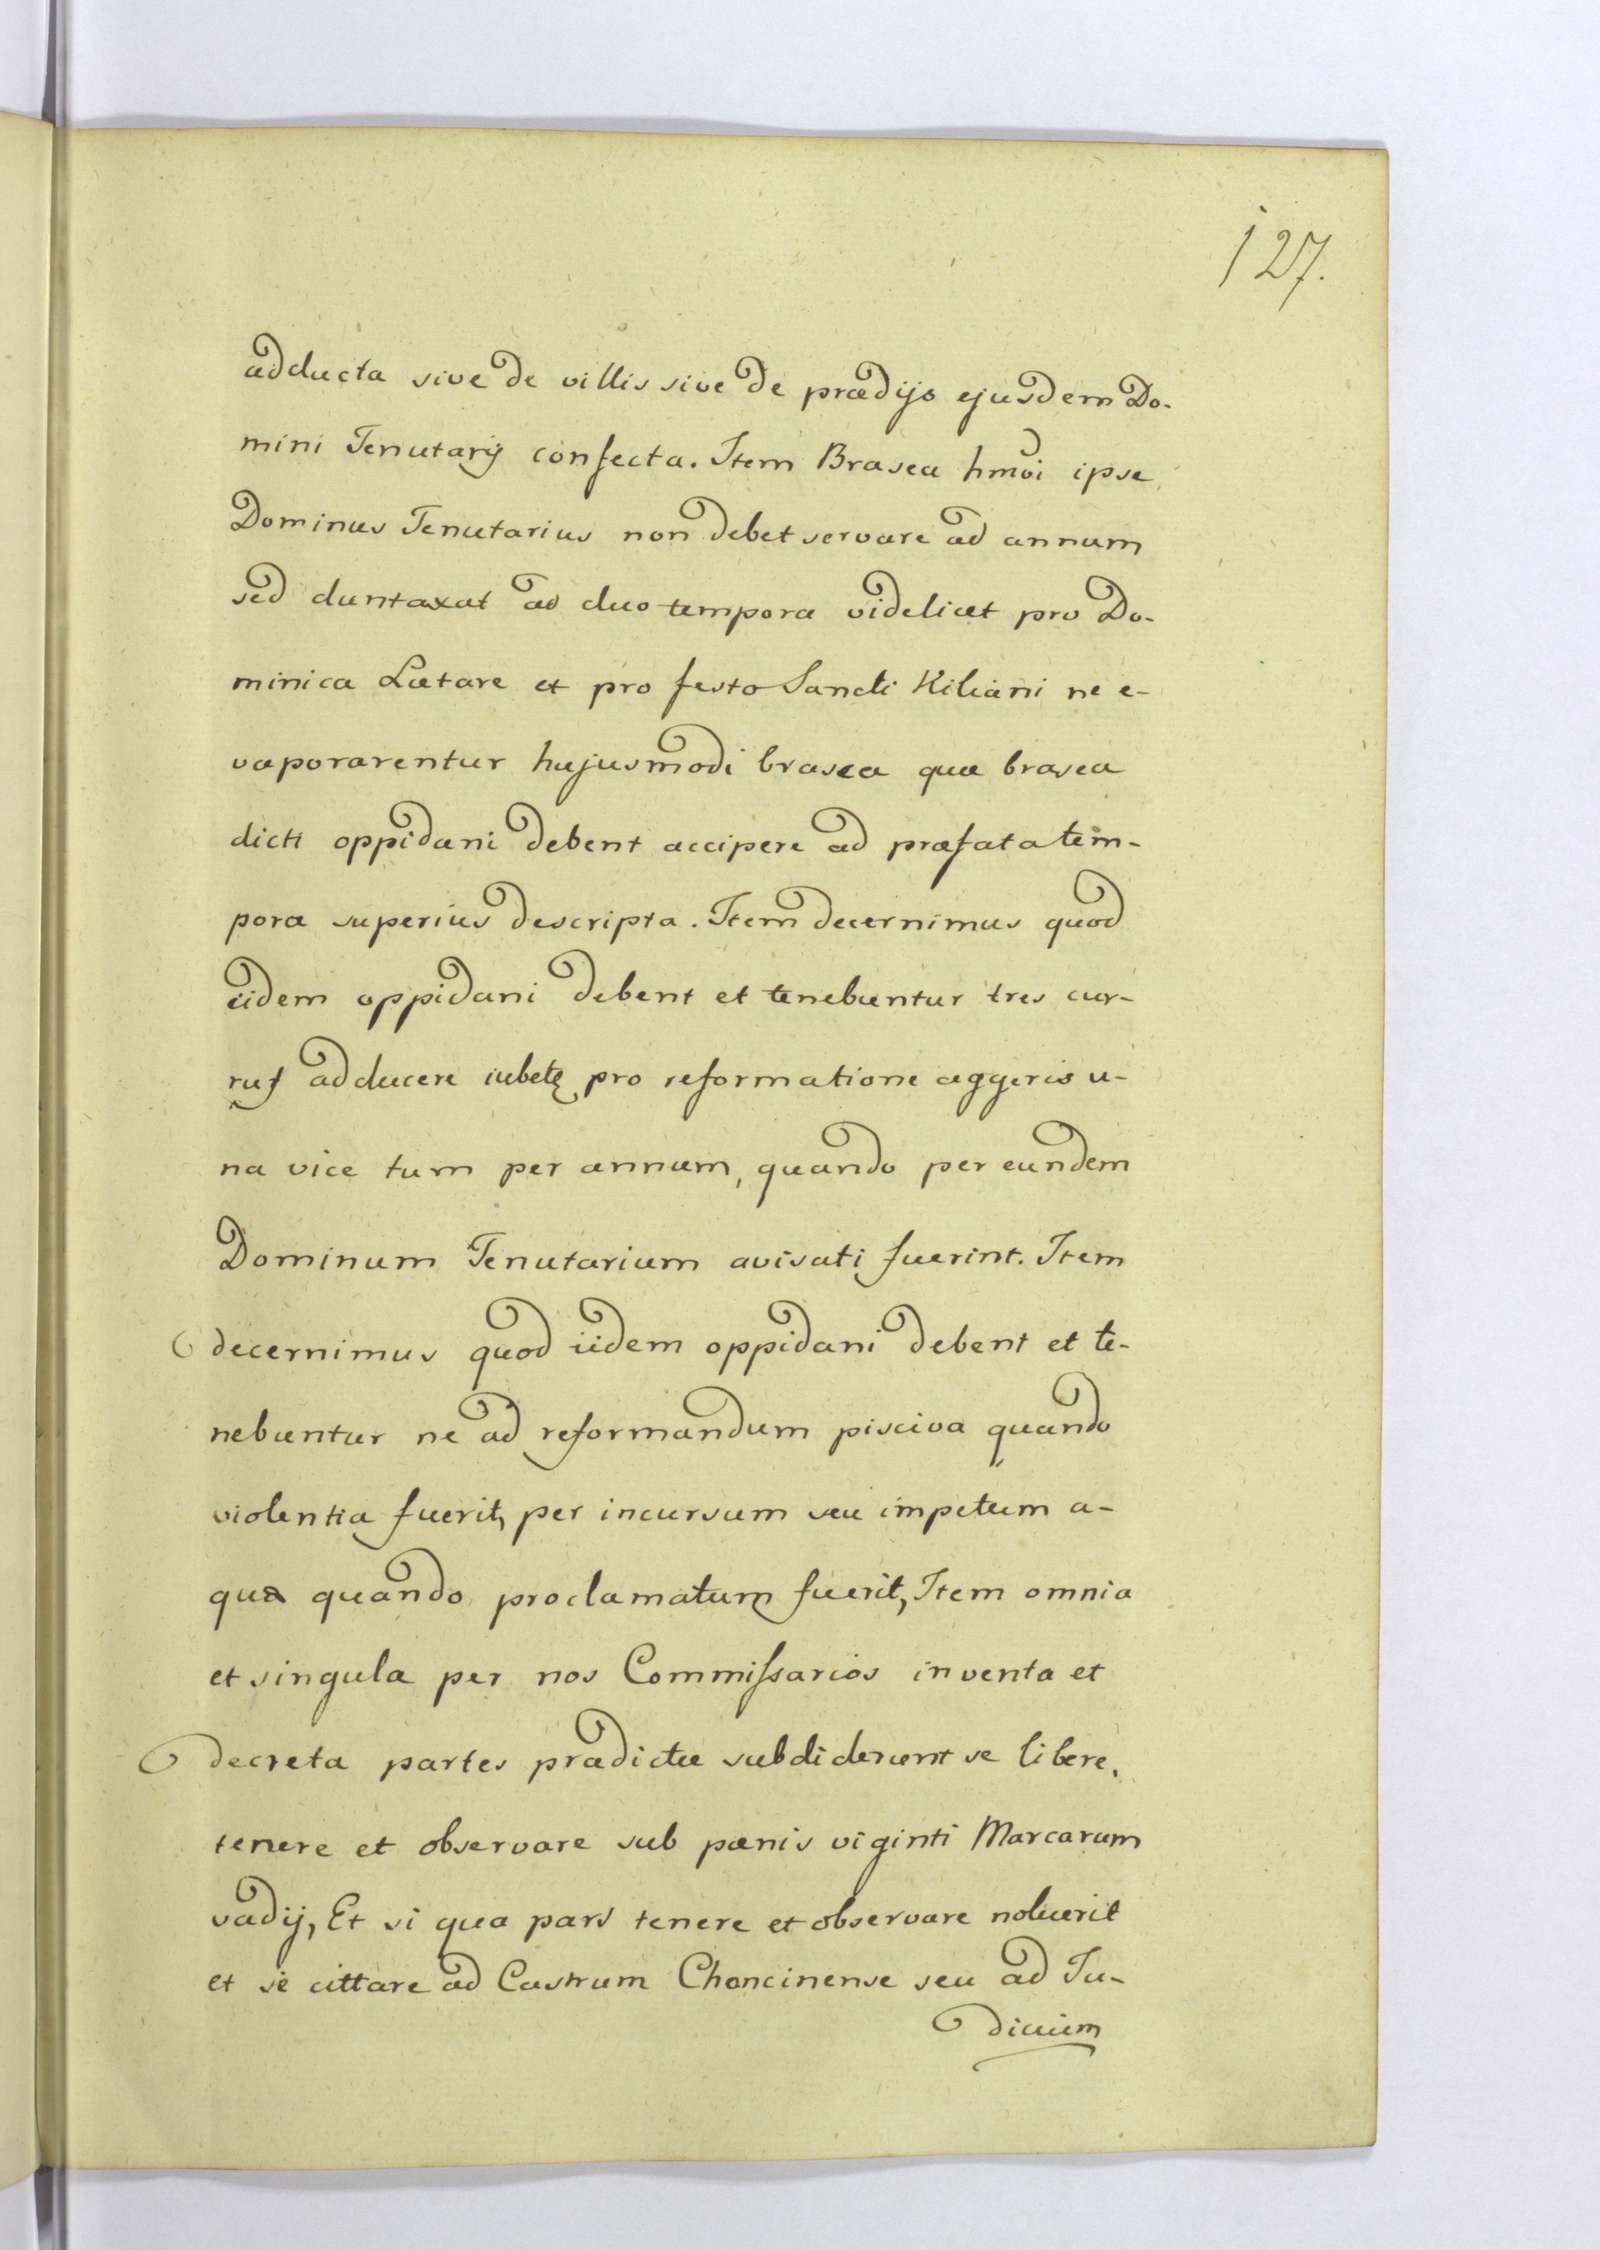 127.
adducta sive de villis sive de prædijs ejusdem Do-
mini Tenutarij confecta. Item Brasea hmoi ipse
Dominus Tenutarius non debet servare ad annum
sed duntaxat ad duo tempora videlicet pro Do-
minica Lætare et pro festo Sancti Kiliani ne e-
vaporarentur hujusmodi brasea quæ brasea
dicti oppidani debent accipere ad præfata tem-
pora superius descripta. Item decernimus quod
iidem oppidani debent et tenebuntur tres cur-
rus adducere pro reformatione aggeris u-
na vice tum per annum, quando per eundem
Dominum Tenutarium avisati fuerint. Item
decernimus quod iidem oppidani debent et te-
nebuntur ne ad reformandum pisciva quando
violentia fuerit, per incursum seu impetum a-
qua quando proclamatum fuerit, Item omnia
et singula per nos Commissarios inventa et
decreta partes prædictæ subdiderunt se libere,
tenere et observare sub pænis viginti Marcarum
vadij, Et si qua pars tenere et observare noluerit
et se cittare ad Castrum Choncinense seu ad Iu-
dicium